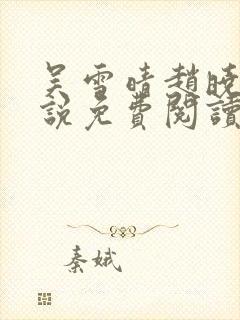 吴雪晴趙曉
說免費閱讀
秦娥